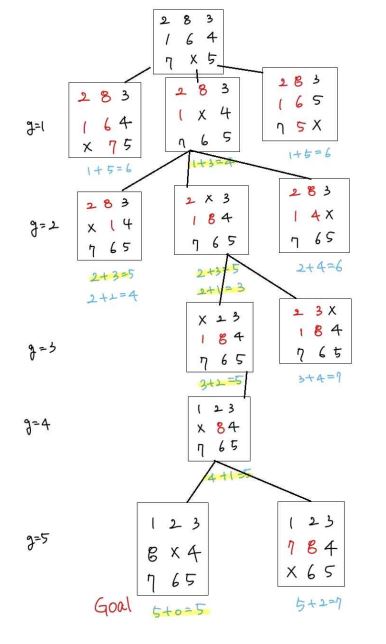 2 8 3
1 6 4
7 x 5
g=1
2 8 3
1 6 4
x 7 5
1+5=6
2 8 3
1 x 4
7 6 5
1+3=4
2 8 3
1 6 5
7 5 x
1+5=6
g=2
2 8 3
x 1 4
7 6 5
2+3=5
2+2=4
2 x 3
1 8 4
7 6 5
2+3=5
2+1=3
2 8 3
1 4 x
7 6 5
2+4=6
g=3
x 2 3
1 8 4
7 6 5
3+2=5
2 3 x
1 8 4
7 6 5
3+4=7
g=4
1 2 3
x 8 4
7 6 5
4+1=5
g=5
1 2 3
8 x 4
7 6 5
Goal
5+0=5
1 2 3
7 8 4
x 6 5
5+2=7